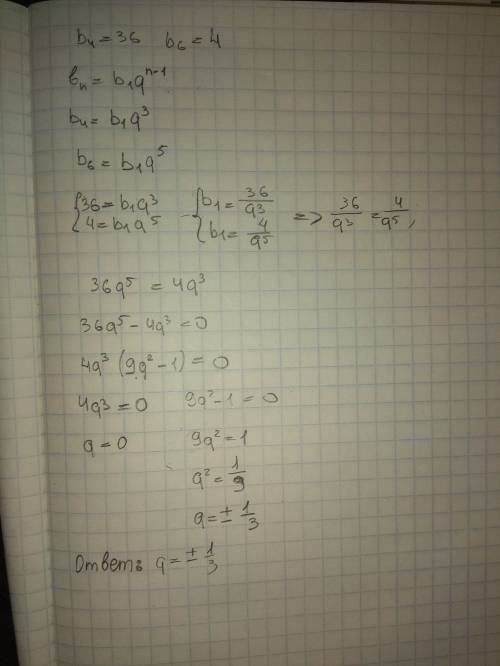 b₄ = 36 b₆ = 4
bₙ = b₁q^(n-1)
b₄ = b₁q³
b₆ = b₁q⁵
{36 = b₁q³ {b₁ = 36/q³ => 36/q³ = 4/q⁵;
{4 = b₁q⁵ {b₁ = 4/q⁵
36q⁵ = 4q³
36q⁵ - 4q³ = 0
4q³ (9q² - 1) = 0
4q³ = 0 9q² - 1 = 0
q = 0 9q² = 1
q² = 1/9
q = ± 1/3
Ответъ q = ± 1/3